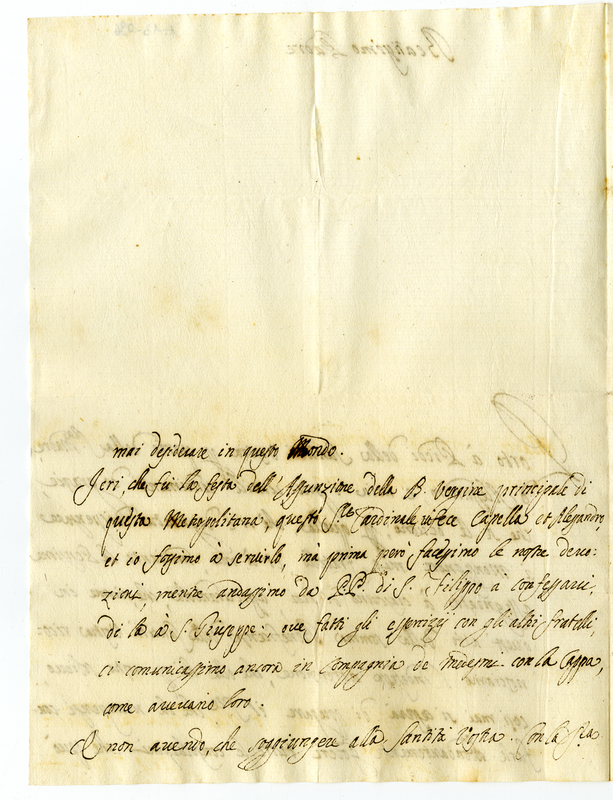 mai desiderare in questo Mondo.
Jeri, che fù la festa dell'Assunzione della B. Vergine principale di
questa Metropolitana, questo Sig.re Cardinale vi fece Capella et Alesandro,
et io fossimo à servirlo, mà prima però facessimo le nostre devo:
zioni, mentre andassimo da P.P. di S. Filippo a confessarci,
di là à S. Giuseppe, ove fatti gli esercizij con gli altri fratelli,
ci comunicassimo ancora in Compagnia de medesmi con la Cappa,
come avevano loro.
E non avendo, che soggiungere alla Santità Vostra. Con la